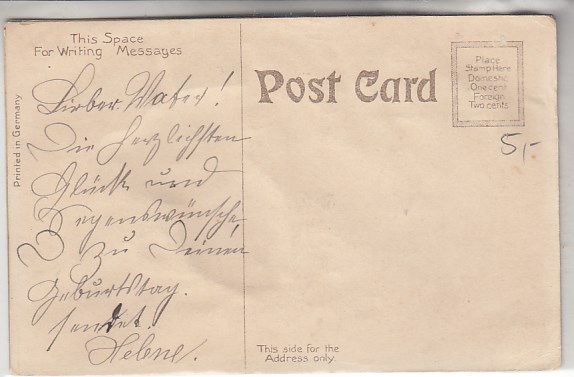 This Space
For Writing Messages
Post Card
Place
Stamp Here
Domestic
One cent
Foreign
Two cents
Printed in Germany
Lieber Vater!
Die herzlichsten
Glück und
Segenswünsche
zu Deinem
Geburtstag.
sendet.
Helene.
5,-
This side for the
Address only.